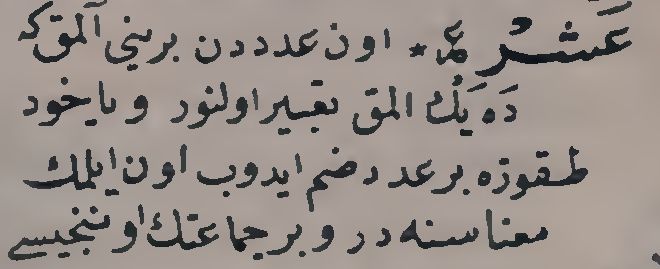 عَشْرْ ع * اون عدددن برينى آلمق كه
دَه يَك المق تعبير اولنور و ياخود
طقوزه بر عدد ضم ايدوب اون ايلمك
معناسنه در و بر جماعتك اوننجيسى